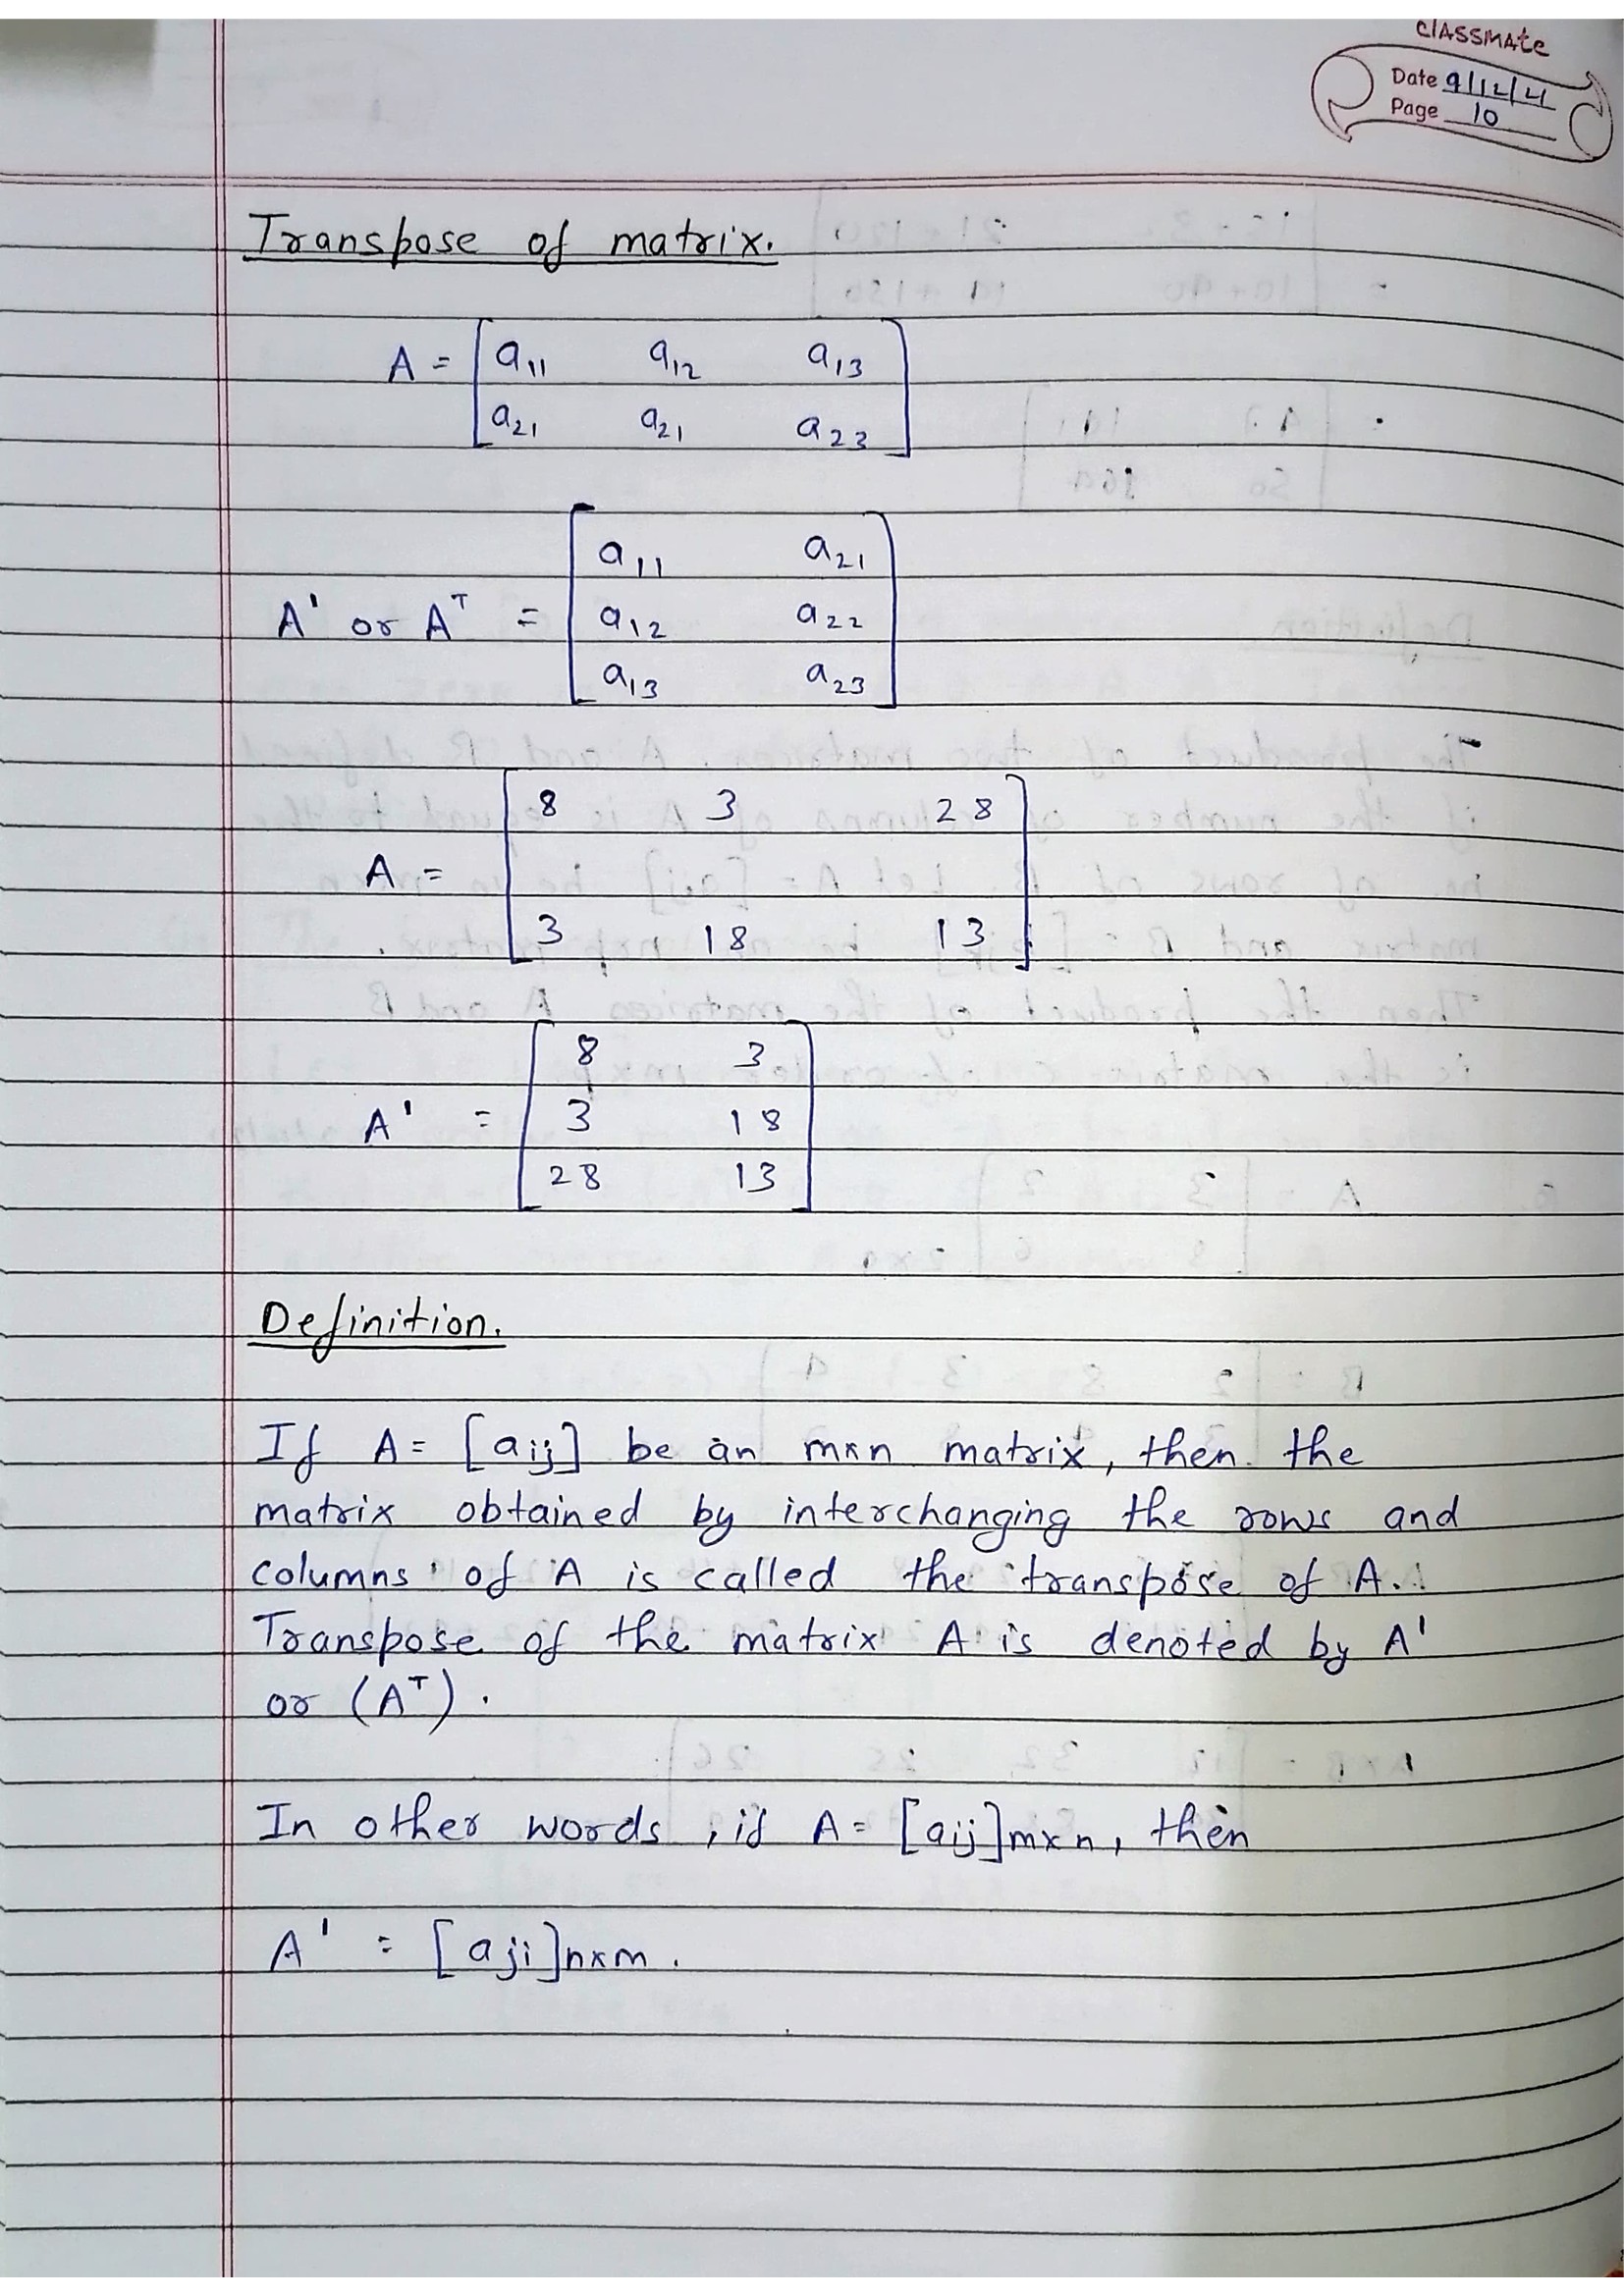 classmate
Date 9/12/21
Page 10
Transpose of matrix.
A = [ a11 a12 a13
a21 a21 a23 ]
[ a11 a21
A' or Aᵀ = a12 a22
a13 a23 ]
[ 8 3 28
A =
3 18 13 ]
[ 8 3
A' = 3 18
28 13 ]
Definition.
If A = [aij] be an m×n matrix, then the
matrix obtained by interchanging the rows and
columns of A is called the transpose of A.
Transpose of the matrix A is denoted by A'
or (Aᵀ).
In other words, if A = [aij]m×n, then
A' = [aji]n×m.